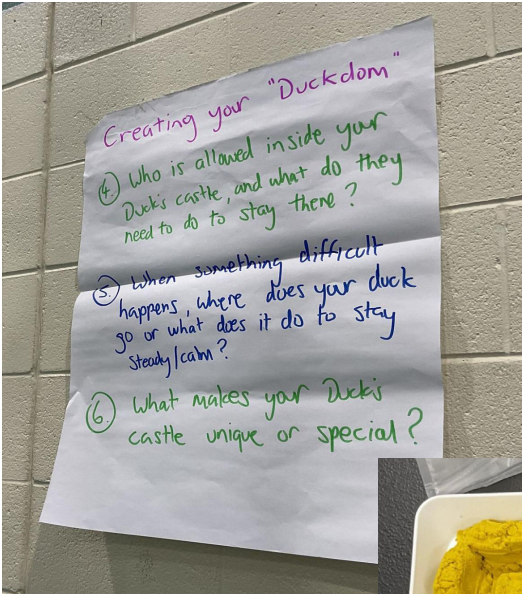 Creating your "Duckdom"
4. Who is allowed inside your
Duck's castle, and what do they
need to do to stay there?
5. When something difficult
happens, where does your duck
go or what does it do to stay
steady/calm?
6. What makes your Duck's
castle unique or special?